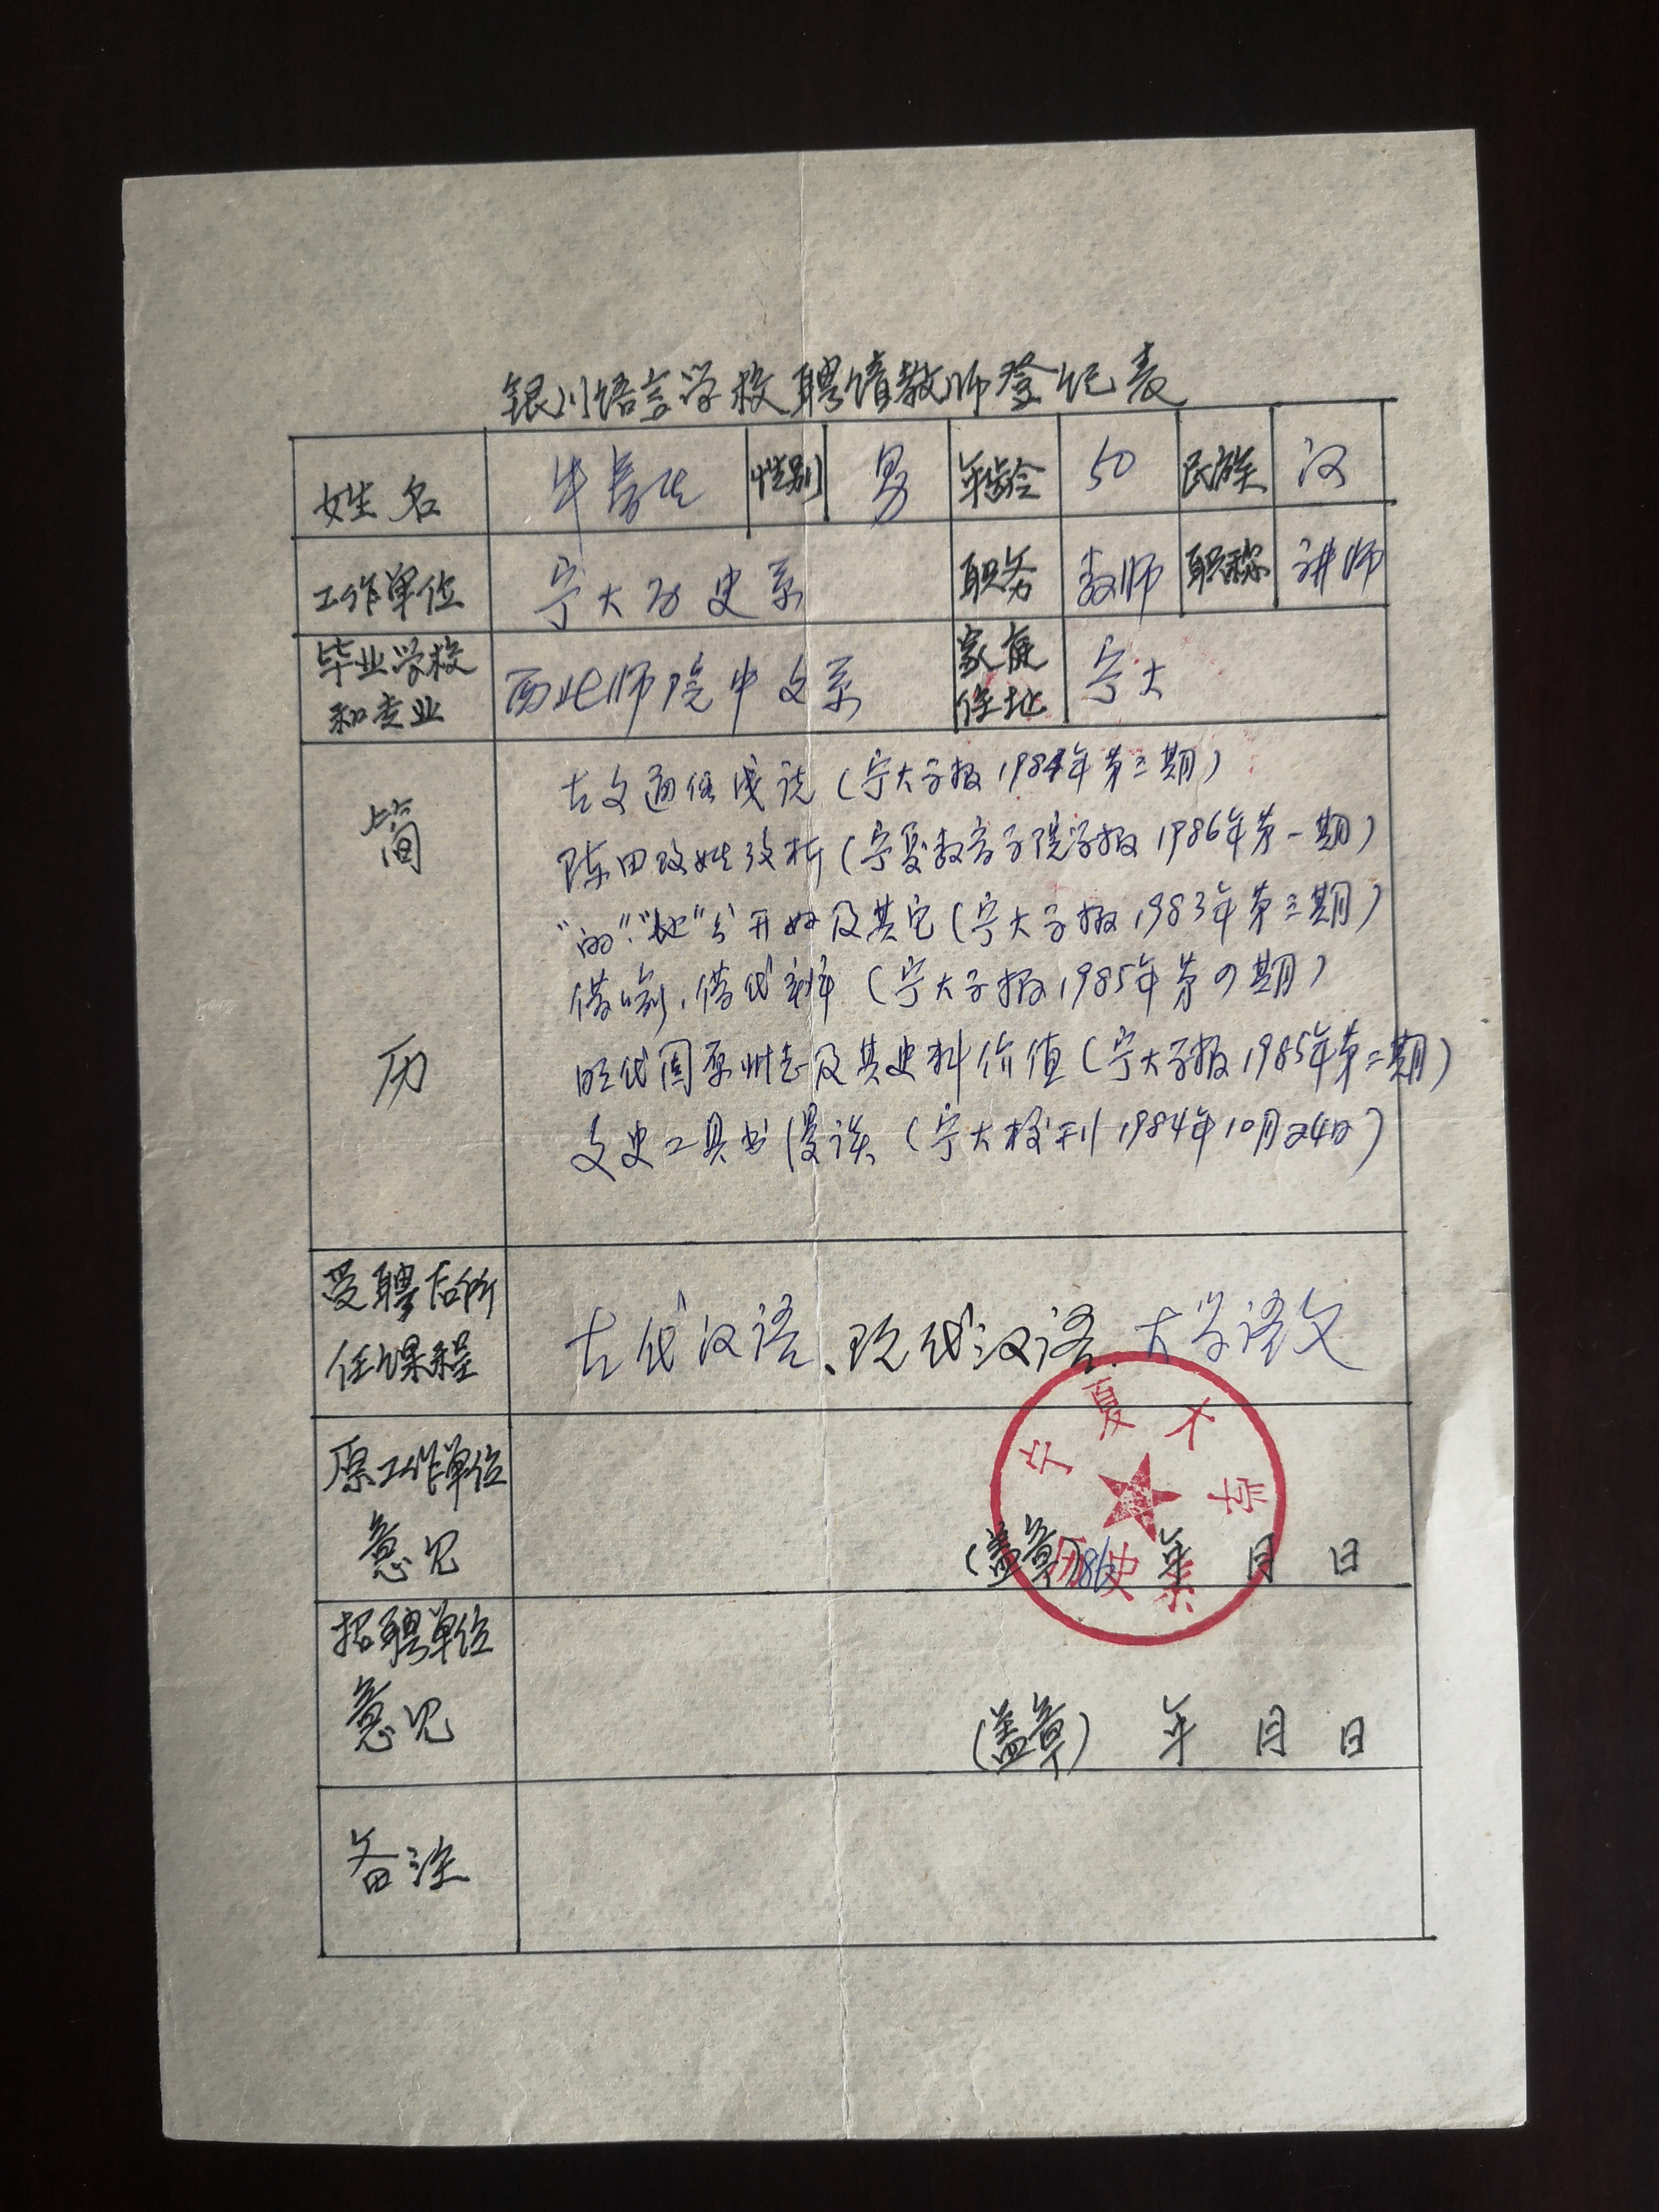 银川语言学校聘请教师登记表
姓名 牛 生 性别 男 年龄 50 民族 汉
工作单位 宁大历史系 职务 教师 职称 讲师
毕业学校和专业 西北师院中文系 家庭住址 宁大
简历
古文通假浅说(宁大学报1984年第三期)
陈田改姓考析(宁夏教育学院学报1986年第一期)
“的”“地”分开好及其它(宁大学报1983年第三期)
借喻、借代辨(宁大学报1985年第四期)
明代固原州志及其史料价值(宁大学报1985年第二期)
文史工具书漫谈(宁大校刊1984年10月24日)
受聘后所任课程 古代汉语、现代汉语、大学语文
原工作单位意见
宁夏大学
历史系
(盖章)86年 月 日
招聘单位意见
(盖章) 年 月 日
备注